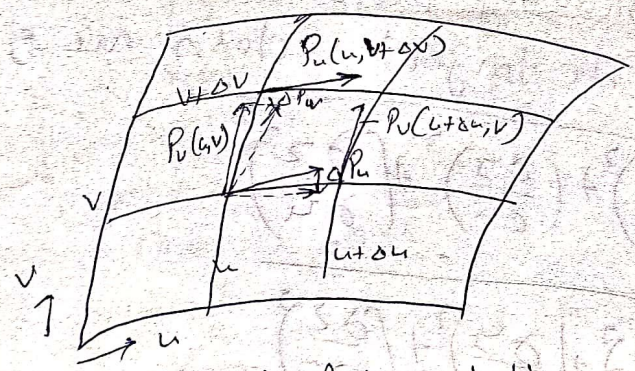 P_u(u, v+Δv)
v+Δv
ΔP_uv
P_v(u,v)
P_v(u+Δu, v)
ΔP_u
v
u
u+Δu
v
u